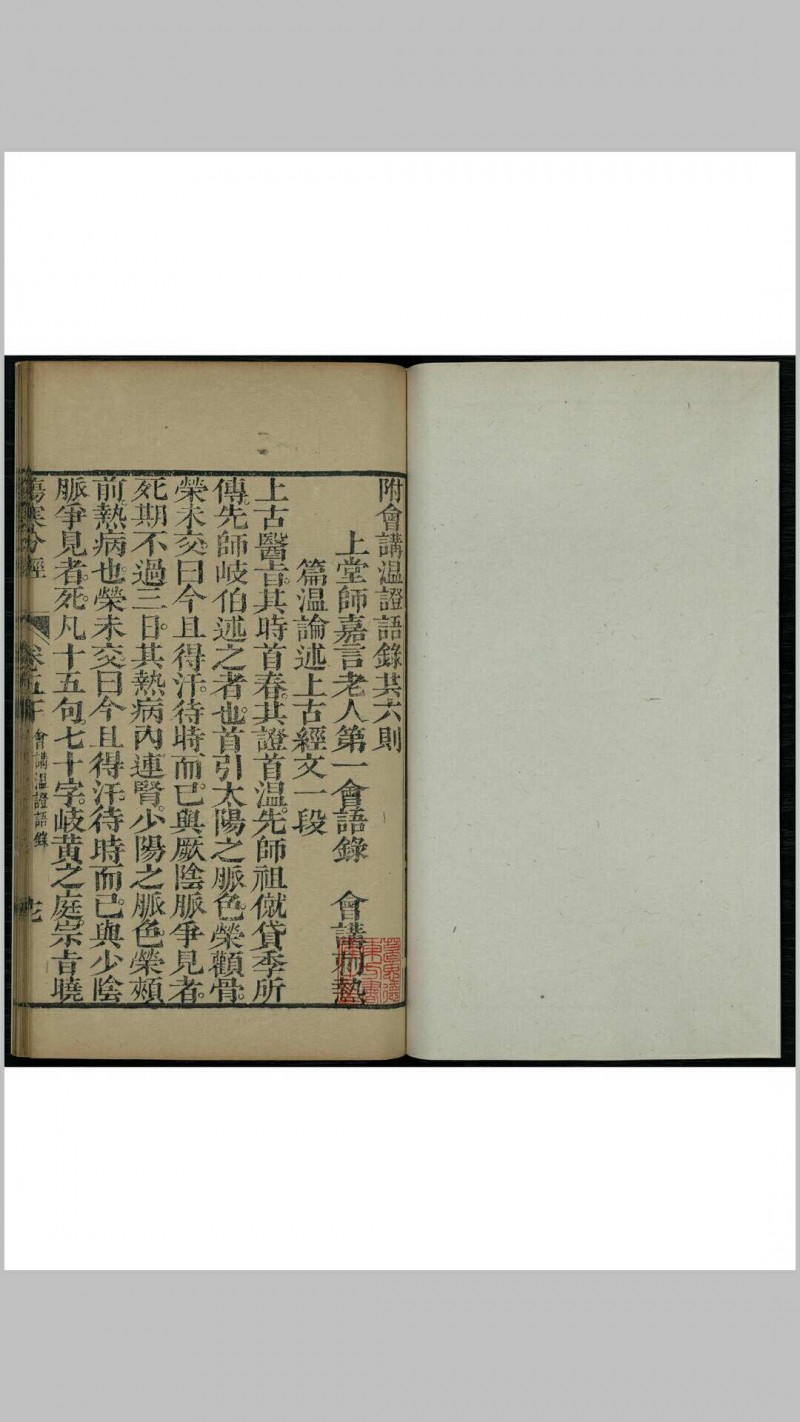 附會講溫證語錄共六則
上堂師嘉言老人第一會語錄　會講刺熱
篇溫論述上古經文一段
上古醫旨。其時首春。其證首溫。先師祖僦貸季所
傳。先師岐伯述之者也。首引太陽之脈。色榮顴骨。
榮未交。曰今且得汗。待時而已。與厥陰脈爭見者。
死期不過三日。其熱病內連腎。少陽之脈。色榮頰
前。熱病也。榮未交。曰今且得汗。待時而已。與少陰
脈爭見者。死。凡十五句。七十字。岐黃之庭。宗旨曉
傷寒分經　卷五下　會講溫證語錄